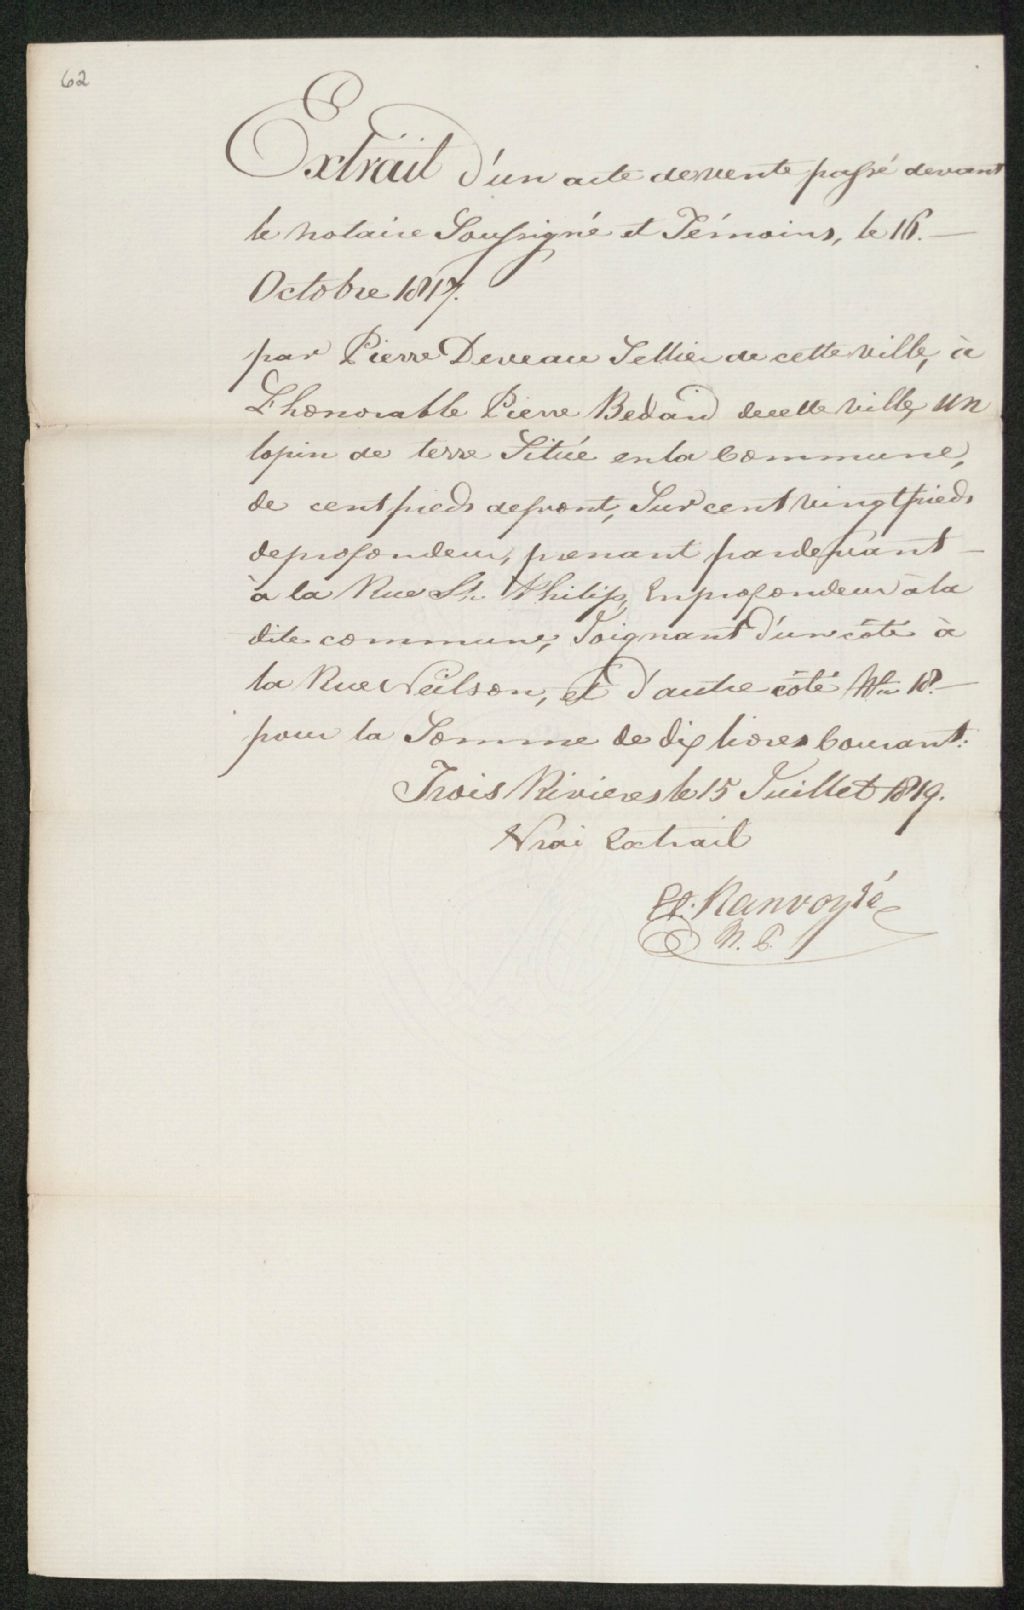 62
Extrait d'un acte de vente passé devant
le notaire Soussigné et Témoins, le 16.—
Octobre 1817.
par Pierre Deveau Sellier de cette ville, à
L'honorable Pierre Bedard de cette ville, un
lopin de terre Située en la Commune,
de cent pieds de front, Sur cent vingt pieds
de profondeur, prenant pardevant —
à la Rue St. Philip, En profondeur à la
dite commune, Joignant d'un côté à
la Rue Neilson, et d'autre côté No. 18.—
pour la Somme de dix livres Courant:
Trois Rivieres le 15 Juillet 1819.
Vrai Extrait
Ranvoyzé
N. P.